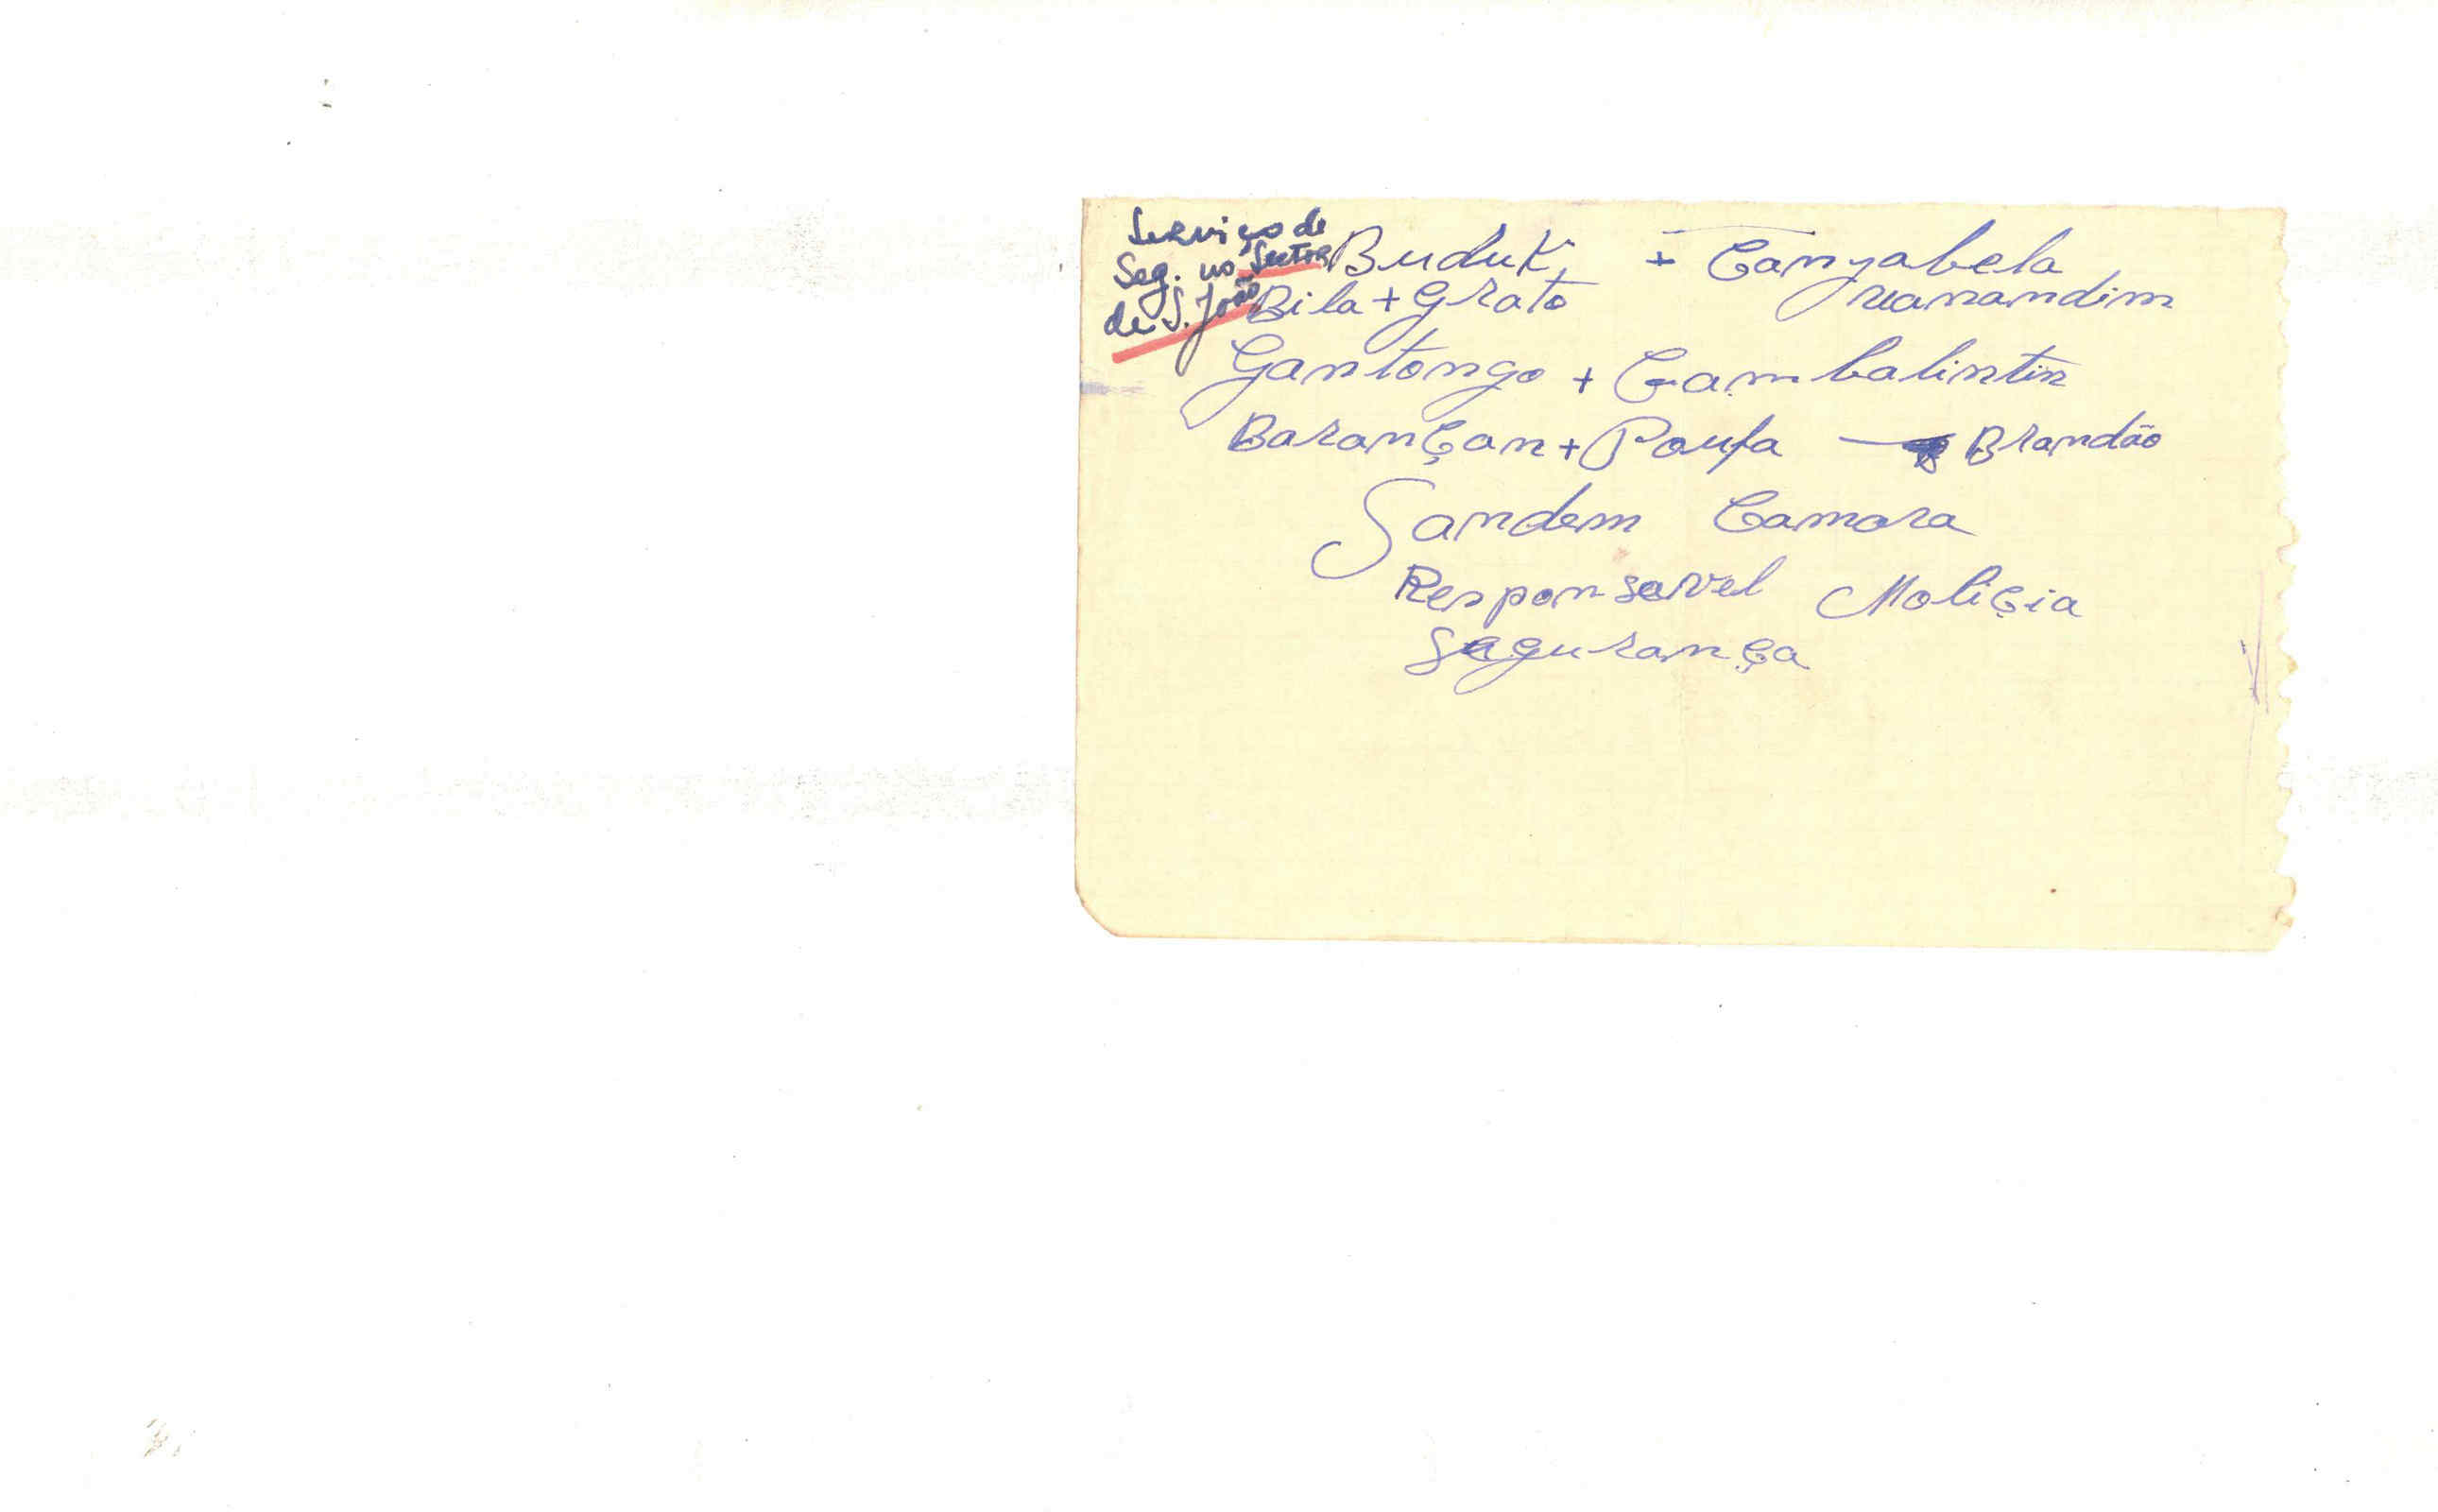 Serviço de
Seg. no Sector
de S. João
Buduk, + Canyabela
Bila + Grato
Gantongo + Cambalintin
Barançan + Paufa — Brandão
Sandem Camara
Responsavel Moliçia
Segurança